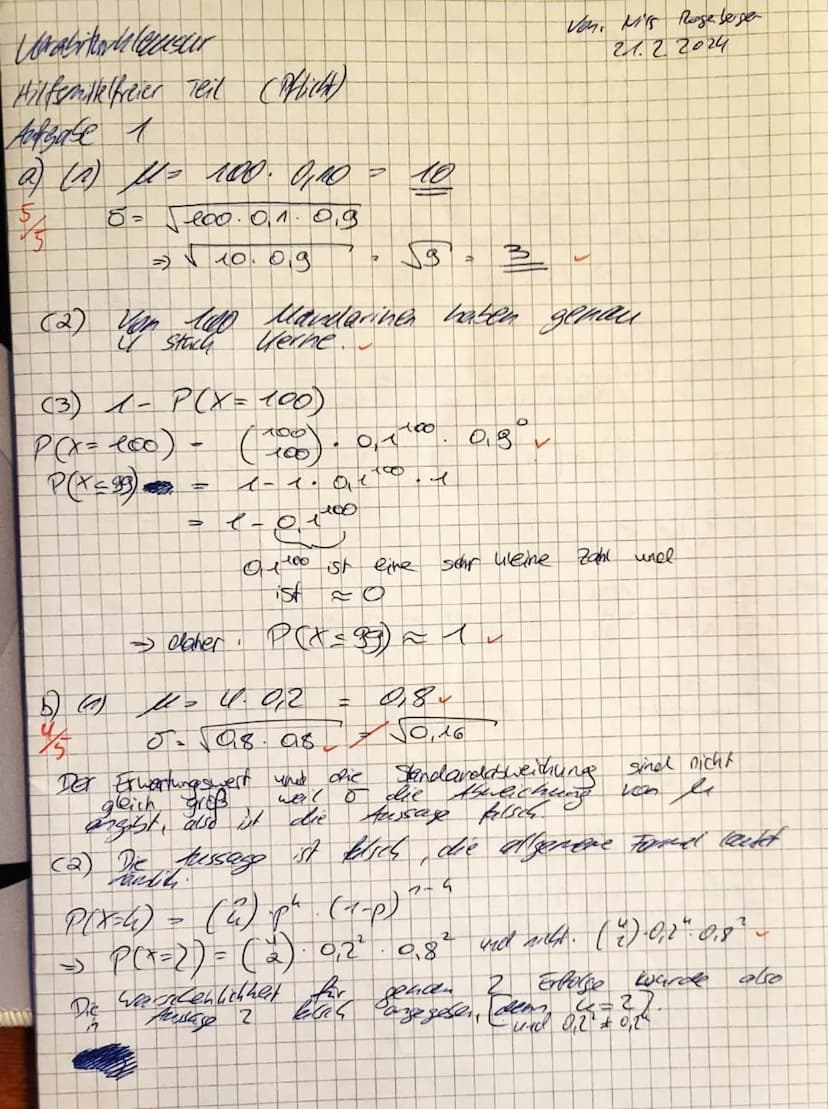 Von: Nils Rogenberger
21.2.2024
Vorabiturklausur
Hilfsmittelfreier Teil (Pflicht)
Aufgabe 1
a) (1) μ = 100 · 0,10 = 10
5/5
σ = √100 · 0,1 · 0,9
⇒ √10 · 0,9 = √9 = 3 ✓
(2) Von 100 Mandarinen haben genau
4 stück Kerne. ✓
(3) 1 - P(X = 100)
P(X = 100) = (100 100) · 0,1^100 · 0,9^0 ✓
P(X ≤ 99) = 1 - 1 · 0,1^100 · 1
= 1 - 0,1^100
0,1^100 ist eine sehr kleine Zahl und
ist ≈ 0
⇒ daher: P(X ≤ 99) ≈ 1 ✓
b) (1) μ = 4 · 0,2 = 0,8 ✓
4/5
σ = √0,8 · 0,8 ✓ = √0,16
Der Erwartungswert und die Standardabweichung sind nicht
gleich groß, weil σ die Abweichung von μ
angibt, also ist die Aussage falsch.
(2) Die Aussage ist falsch, die allgemeine Formel lautet
nämlich:
P(X=k) = (n k) · p^k · (1-p)^n-k
⇒ P(X=2) = (4 2) · 0,2^2 · 0,8^2 und nicht: (4 2) · 0,2^4 · 0,8^2 ✓
Die Warscheinlichkeit für genau 2 Erfolge wurde also
in Aussage 2 falsch angegeben, [denn k = 2].
und 0,2^2 ≠ 0,2^4